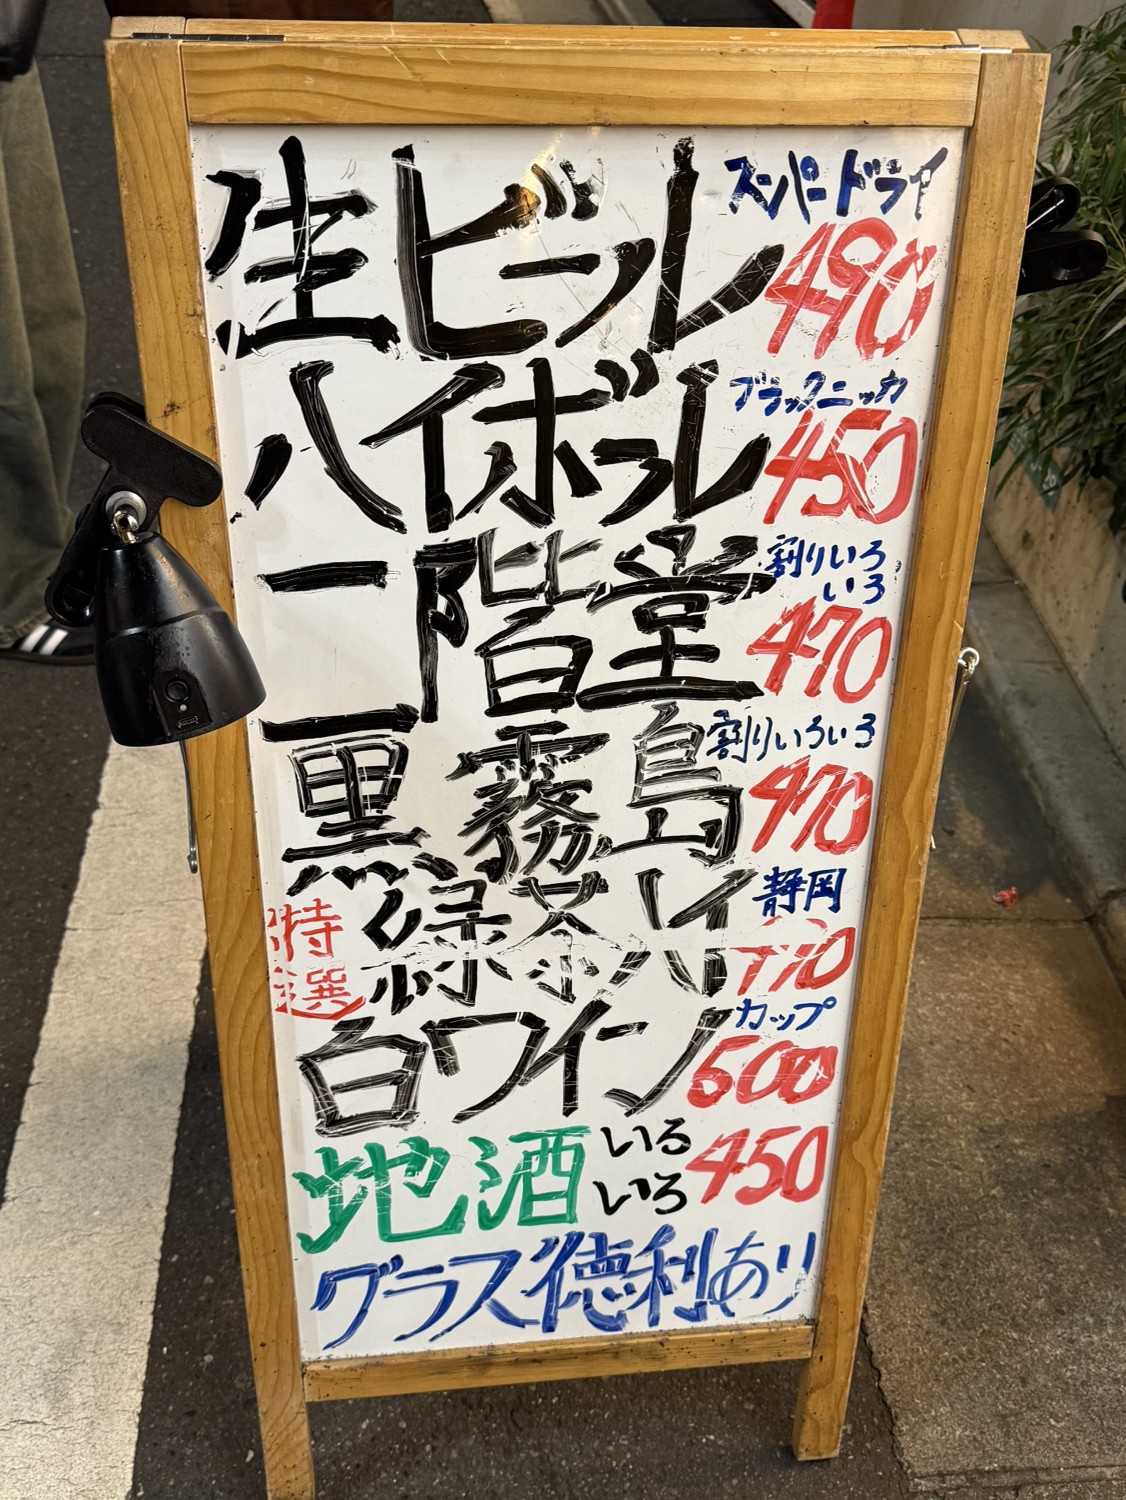 生ビール スーパードライ 490
ハイボール ブラックニッカ 450
一階堂 割りいろ
いろ
470
黒霧島 割りいろいろ 470
特選 緑茶ハイ 静岡
白ワイン カップ 500
地酒 いろ
いろ
450
グラス徳利あり